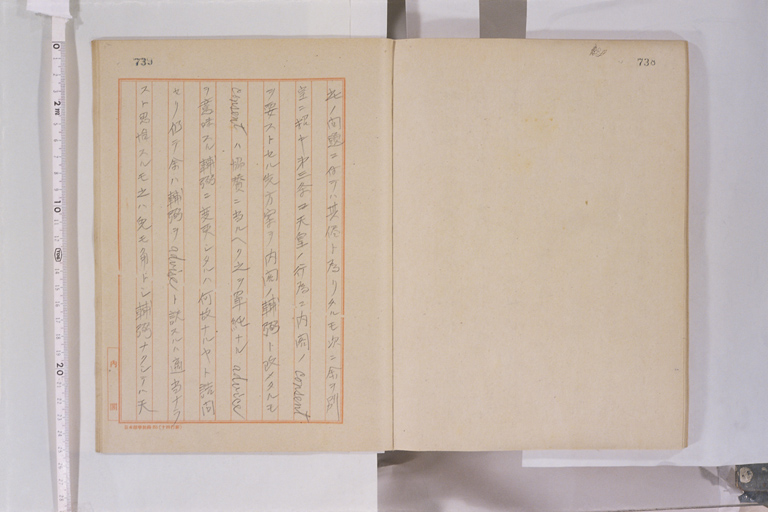 此ノ問題ニ付テハ其侭ト為リタルモ次ニ余ヲ別
室ニ招キ第三条ニ天皇ノ行為ニ内閣ノ consent
ヲ要ストセル先方案ヲ内閣ノ輔弼ト改メタルモ
consent ハ協賛ニ当ルヘク之ヲ単純ナル advice
ヲ意味スル輔弼ニ変更シタルハ何故ナルヤト詰問
セリ仍テ余ハ輔弼ヲ advice ト訳スルハ適当ナラ
スト思惟スルモ之ハ兎モ角トシ輔弼ナクシテハ天
内閣
730
730